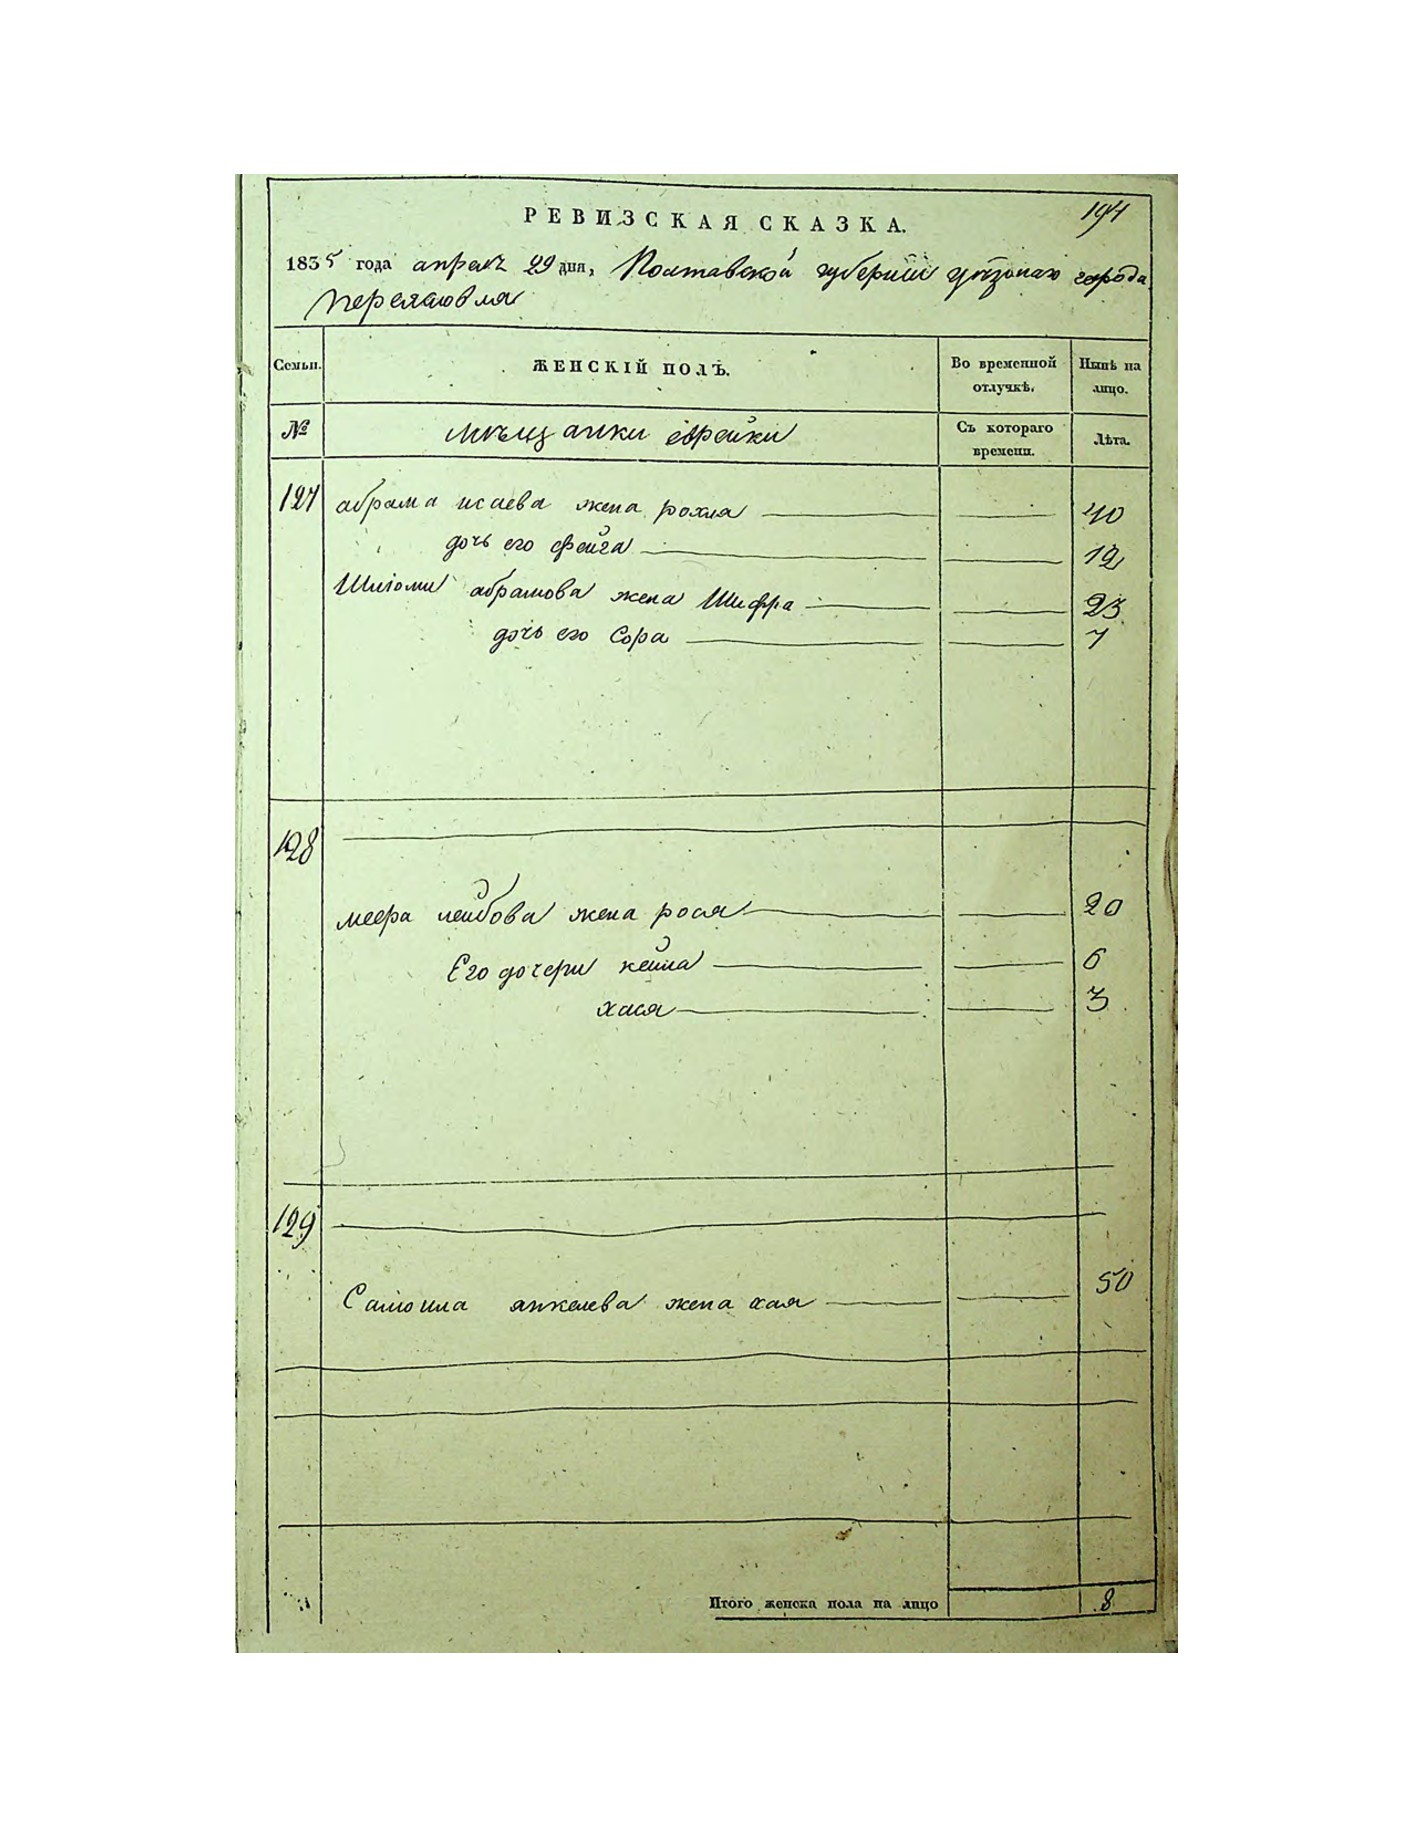 194
РЕВИЗСКАЯ СКАЗКА.
1835 года апреля 29 дня, Полтавской губернии уѣзднаго города
Переяславля
Семьи. ЖЕНСКІЙ ПОЛЪ. Во временной отлучкѣ. Нынѣ на лицо.
№ мѣщанки еврейки Съ котораго времени. Лѣта.
127 абрама исаева жена рохля 40
дочь его фейга 12
Шлiомы абрамова жена Шифра 23
дочь его Сора 7
128
меера лейбова жена рося 20
Его дочери кейла 6
хася 3
129
Самоила янкелева жена хая 50
Итого женска пола на лицо 8